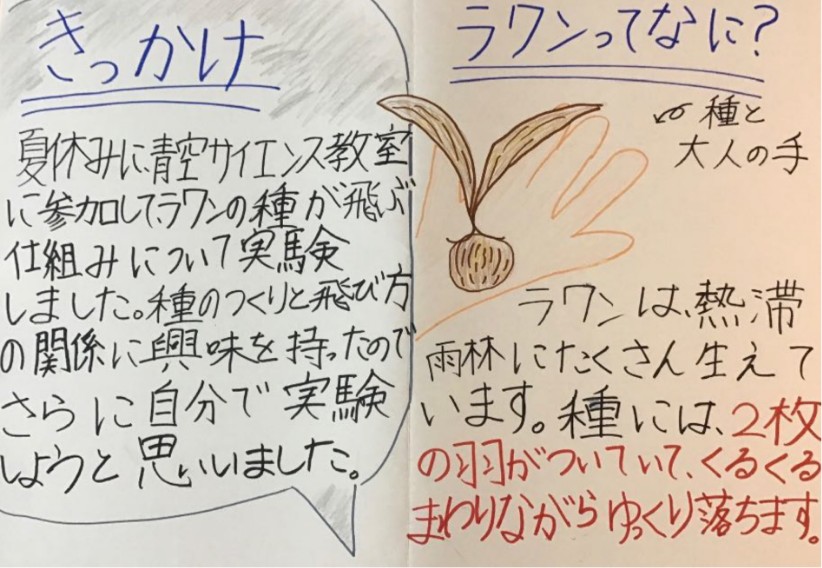 きっかけ
夏休みに、青空サイエンス教室
に参加して、ラワンの種が飛ぶ
仕組みについて実験
しました。種のつくりと飛び方
の関係に興味を持ったので
さらに自分で実験
しようと思いいました。
ラワンってなに?
種と
大人の手
ラワンは、熱滞
雨林にたくさん生えて
います。種には、2枚
の羽がついていて、くるくる
まわりながらゆっくり落ちます。